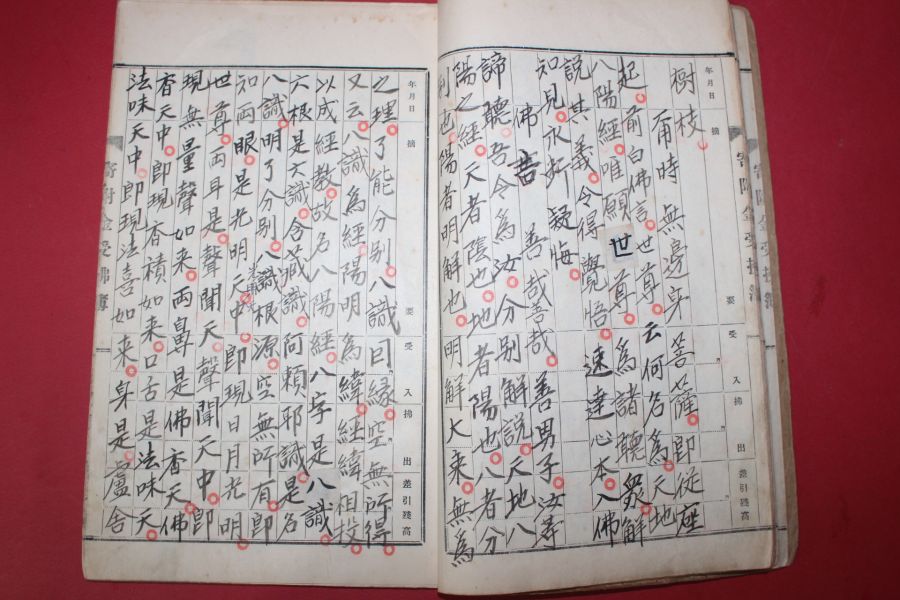 年月日 摘 要 受 入 拂 出 差引殘高
樹枝
爾時無邊身菩薩即從座
起前白佛言世尊云何名為天地
八陽經唯願世尊為諸聽眾解
說其義令得覺悟速達心本入佛
知見永斷疑悔
佛言 善哉善哉善男子汝等
諦聽吾今為汝分別解說天地八
陽之經天者陰也地者陽也八者分
別也陽者明解也明解大乘無為
年月日 摘 要 受 入 拂 出 差引殘高
之理了能分別八識因緣空無所得
又云八識為經陽明為緯經緯相投
以成經教故名八陽經八字是八識
六根是六識含藏識阿頼耶識是名
八識明了分別八識根源空無所有即
知兩眼是光明天中即現日月光明
世尊兩耳是聲聞天聲聞天中即
現無量聲如來兩鼻是佛香天佛
香天中即現香積如來口舌是法味天
法味天中即現法喜如來身是盧舍